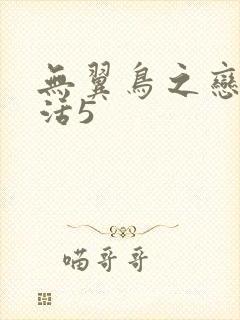 無翼鳥之戀
活5
喵哥哥